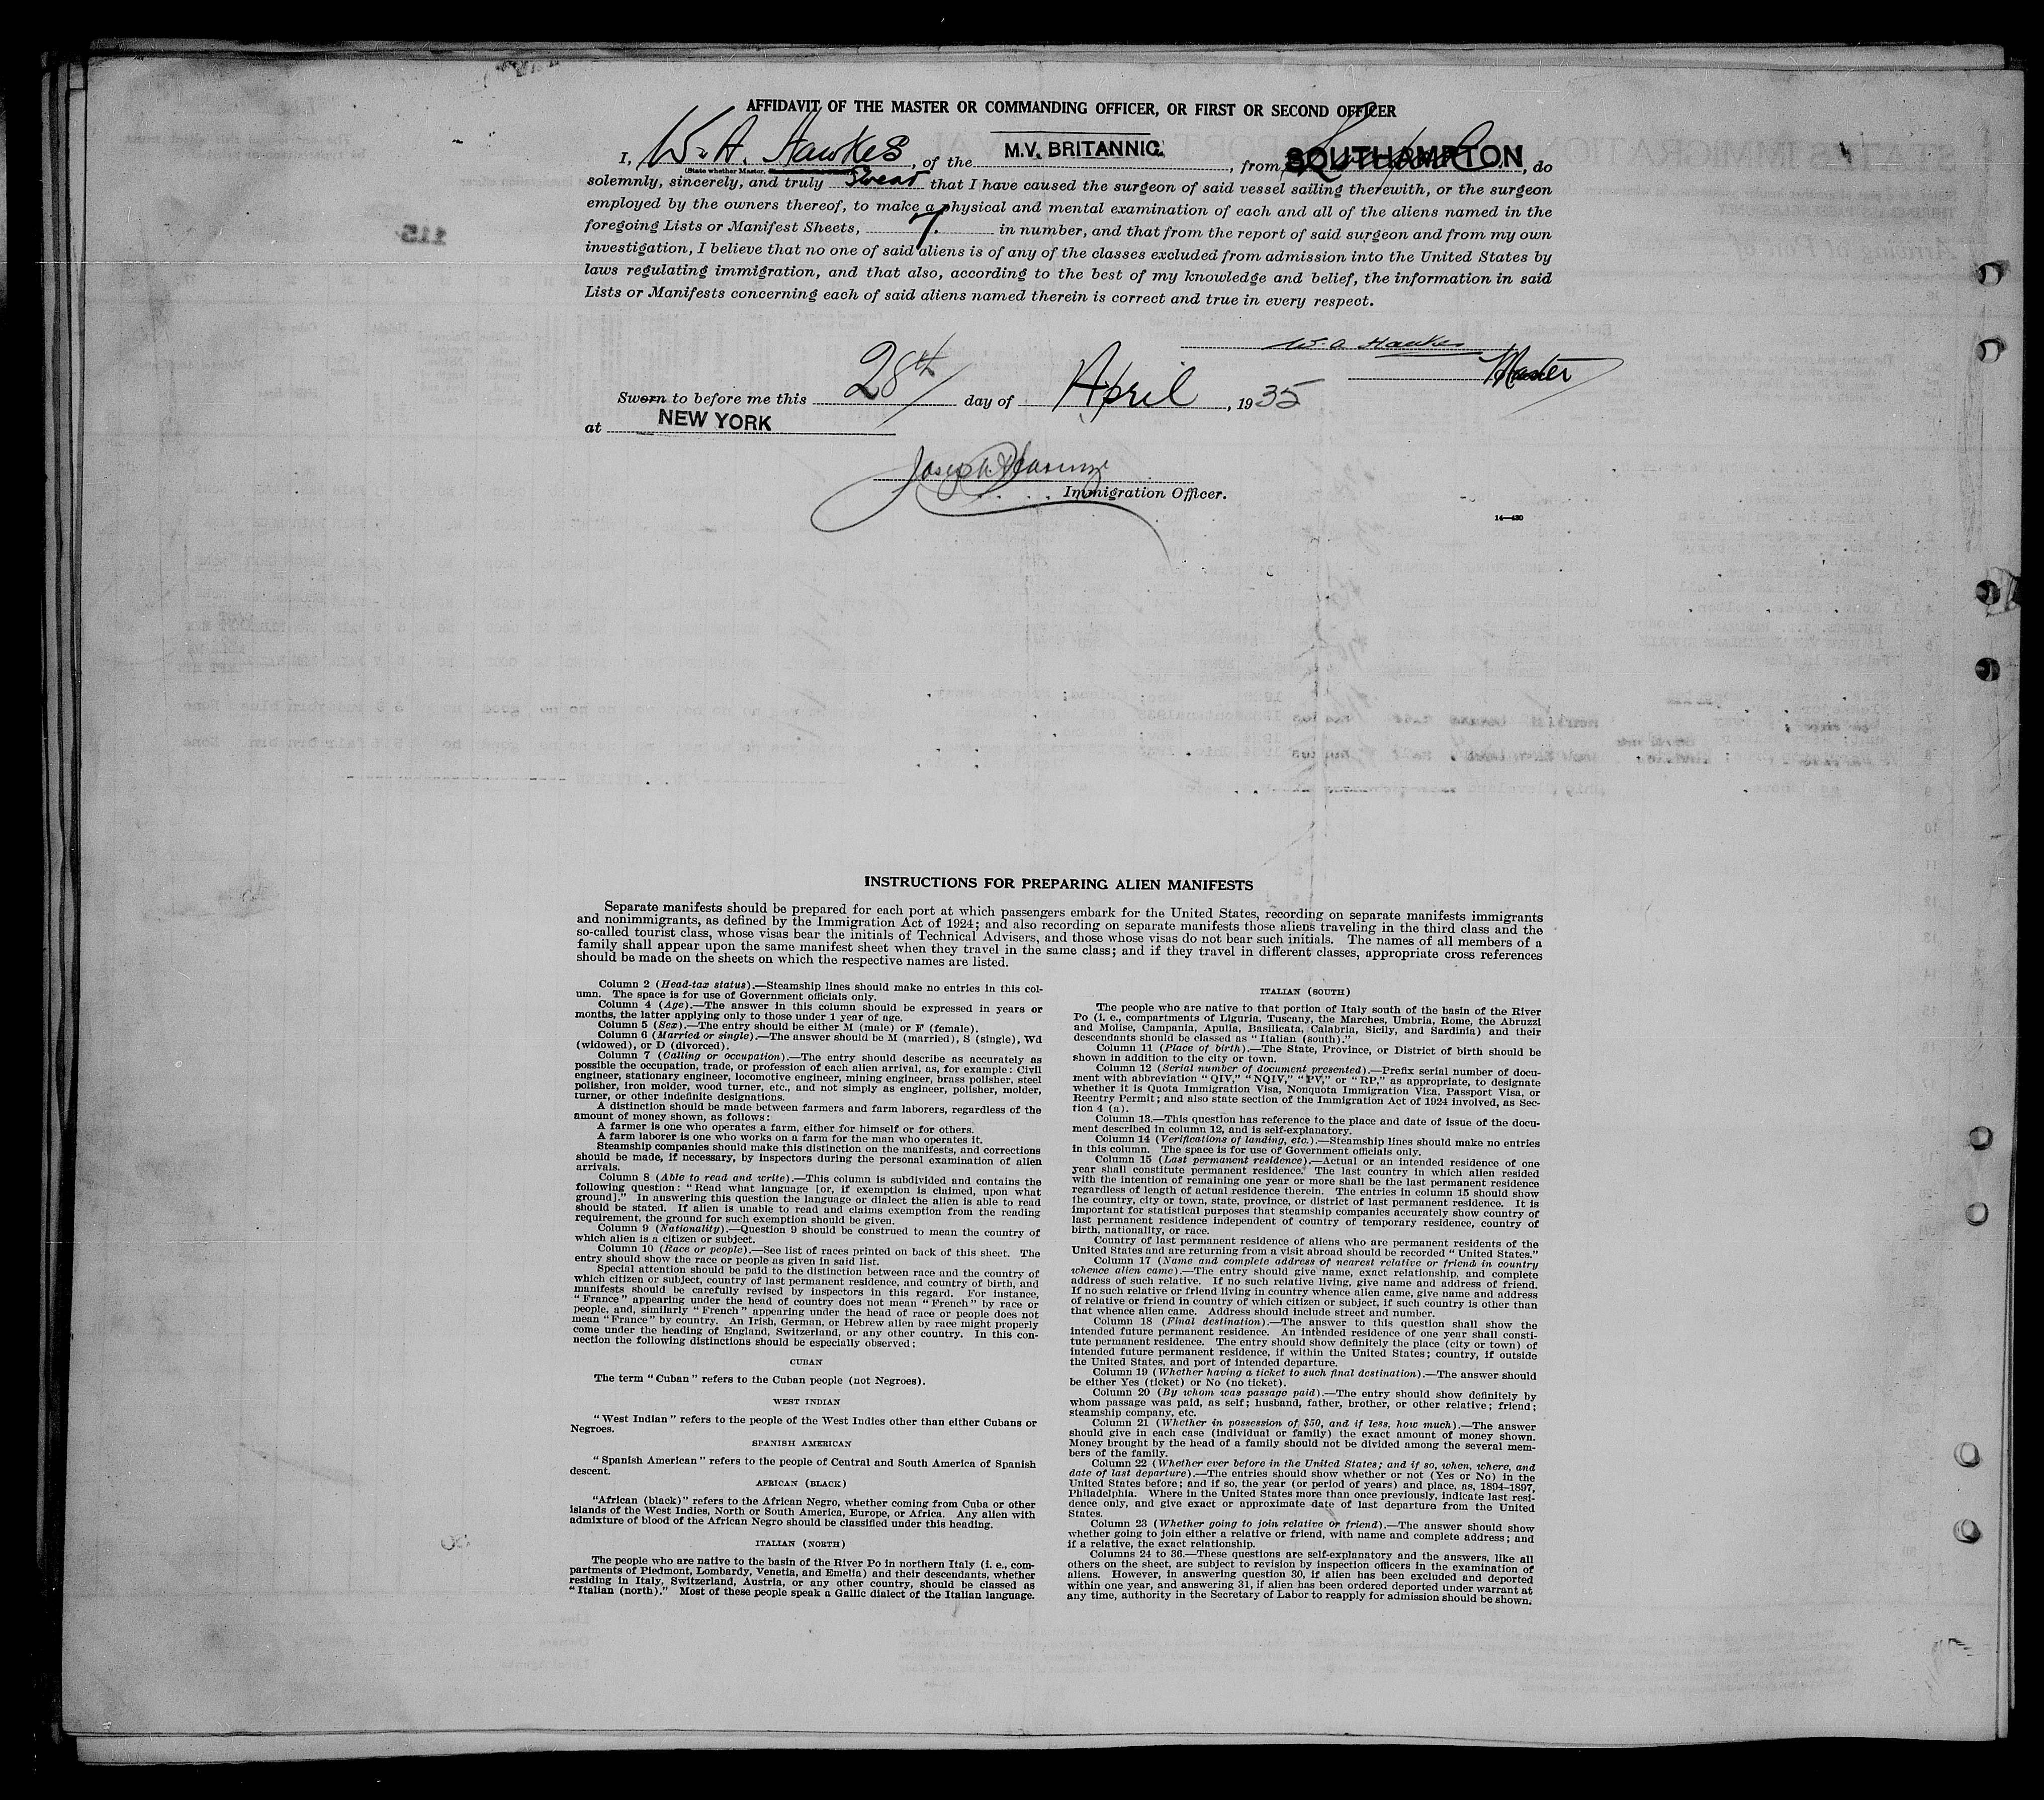 AFFIDAVIT OF THE MASTER OR COMMANDING OFFICER, OR FIRST OR SECOND OFFICER
I, W. A. Hawkes, of the M.V. BRITANNIC., from SOUTHAMPTON, do
(State whether Master,
solemnly, sincerely, and truly swear that I have caused the surgeon of said vessel sailing therewith, or the surgeon
employed by the owners thereof, to make a physical and mental examination of each and all of the aliens named in the
foregoing Lists or Manifest Sheets, 7. in number, and that from the report of said surgeon and from my own
investigation, I believe that no one of said aliens is of any of the classes excluded from admission into the United States by
laws regulating immigration, and that also, according to the best of my knowledge and belief, the information in said
Lists or Manifests concerning each of said aliens named therein is correct and true in every respect.
W. A. Hawkes
Master
Sworn to before me this 28th day of April, 1935
at NEW YORK
Joseph
Immigration Officer.
14—430
115
INSTRUCTIONS FOR PREPARING ALIEN MANIFESTS
Separate manifests should be prepared for each port at which passengers embark for the United States, recording on separate manifests immigrants
and nonimmigrants, as defined by the Immigration Act of 1924; and also recording on separate manifests those aliens traveling in the third class and the
so-called tourist class, whose visas bear the initials of Technical Advisers, and those whose visas do not bear such initials. The names of all members of a
family shall appear upon the same manifest sheet when they travel in the same class; and if they travel in different classes, appropriate cross references
should be made on the sheets on which the respective names are listed.
Column 2 (Head-tax status).—Steamship lines should make no entries in this col-
umn. The space is for use of Government officials only.
Column 4 (Age).—The answer in this column should be expressed in years or
months, the latter applying only to those under 1 year of age.
Column 5 (Sex).—The entry should be either M (male) or F (female).
Column 6 (Married or single).—The answer should be M (married), S (single), Wd
(widowed), or D (divorced).
Column 7 (Calling or occupation).—The entry should describe as accurately as
possible the occupation, trade, or profession of each alien arrival, as, for example: Civil
engineer, stationary engineer, locomotive engineer, mining engineer, brass polisher, steel
polisher, iron molder, wood turner, etc., and not simply as engineer, polisher, molder,
turner, or other indefinite designations.
A distinction should be made between farmers and farm laborers, regardless of the
amount of money shown, as follows:
A farmer is one who operates a farm, either for himself or for others.
A farm laborer is one who works on a farm for the man who operates it.
Steamship companies should make this distinction on the manifests, and corrections
should be made, if necessary, by inspectors during the personal examination of alien
arrivals.
Column 8 (Able to read and write).—This column is subdivided and contains the
following question: "Read what language [or, if exemption is claimed, upon what
ground]." In answering this question the language or dialect the alien is able to read
should be stated. If alien is unable to read and claims exemption from the reading
requirement, the ground for such exemption should be given.
Column 9 (Nationality).—Question 9 should be construed to mean the country of
which alien is a citizen or subject.
Column 10 (Race or people).—See list of races printed on back of this sheet. The
entry should show the race or people as given in said list.
Special attention should be paid to the distinction between race and the country of
which citizen or subject, country of last permanent residence, and country of birth, and
manifests should be carefully revised by inspectors in this regard. For instance,
"France" appearing under the head of country does not mean "French" by race or
people, and, similarly "French" appearing under the head of race or people does not
mean "France" by country. An Irish, German, or Hebrew alien by race might properly
come under the heading of England, Switzerland, or any other country. In this con-
nection the following distinctions should be especially observed:
CUBAN
The term "Cuban" refers to the Cuban people (not Negroes).
WEST INDIAN
"West Indian" refers to the people of the West Indies other than either Cubans or
Negroes.
SPANISH AMERICAN
"Spanish American" refers to the people of Central and South America of Spanish
descent.
AFRICAN (BLACK)
"African (black)" refers to the African Negro, whether coming from Cuba or other
islands of the West Indies, North or South America, Europe, or Africa. Any alien with
admixture of blood of the African Negro should be classified under this heading.
ITALIAN (NORTH)
The people who are native to the basin of the River Po in northern Italy (i. e., com-
partments of Piedmont, Lombardy, Venetia, and Emelia) and their descendants, whether
residing in Italy, Switzerland, Austria, or any other country, should be classed as
"Italian (north)." Most of these people speak a Gallic dialect of the Italian language.
ITALIAN (SOUTH)
The people who are native to that portion of Italy south of the basin of the River
Po (i. e., compartments of Liguria, Tuscany, the Marches, Umbria, Rome, the Abruzzi
and Molise, Campania, Apulia, Basilicata, Calabria, Sicily, and Sardinia) and their
descendants should be classed as "Italian (south)."
Column 11 (Place of birth).—The State, Province, or District of birth should be
shown in addition to the city or town.
Column 12 (Serial number of document presented).—Prefix serial number of docu-
ment with abbreviation "QIV," "NQIV," "PV," or "RP," as appropriate, to designate
whether it is Quota Immigration Visa, Nonquota Immigration Visa, Passport Visa, or
Reentry Permit; and also state section of the Immigration Act of 1924 involved, as Sec-
tion 4 (a).
Column 13.—This question has reference to the place and date of issue of the docu-
ment described in column 12, and is self-explanatory.
Column 14 (Verifications of landing, etc.).—Steamship lines should make no entries
in this column. The space is for use of Government officials only.
Column 15 (Last permanent residence).—Actual or an intended residence of one
year shall constitute permanent residence. The last country in which alien resided
with the intention of remaining one year or more shall be the last permanent residence
regardless of length of actual residence therein. The entries in column 15 should show
the country, city or town, state, province, or district of last permanent residence. It is
important for statistical purposes that steamship companies accurately show country of
last permanent residence independent of country of temporary residence, country of
birth, nationality, or race.
Country of last permanent residence of aliens who are permanent residents of the
United States and are returning from a visit abroad should be recorded "United States."
Column 17 (Name and complete address of nearest relative or friend in country
whence alien came).—The entry should give name, exact relationship, and complete
address of such relative. If no such relative living, give name and address of friend.
If no such relative or friend living in country whence alien came, give name and address
of relative or friend in country of which citizen or subject, if such country is other than
that whence alien came. Address should include street and number.
Column 18 (Final destination).—The answer to this question shall show the
intended future permanent residence. An intended residence of one year shall consti-
tute permanent residence. The entry should show definitely the place (city or town) of
intended future permanent residence, if within the United States; country, if outside
the United States, and port of intended departure.
Column 19 (Whether having a ticket to such final destination).—The answer should
be either Yes (ticket) or No (no ticket).
Column 20 (By whom was passage paid).—The entry should show definitely by
whom passage was paid, as self; husband, father, brother, or other relative; friend;
steamship company, etc.
Column 21 (Whether in possession of $50, and if less, how much).—The answer
should give in each case (individual or family) the exact amount of money shown.
Money brought by the head of a family should not be divided among the several mem-
bers of the family.
Column 22 (Whether ever before in the United States; and if so, when, where, and
date of last departure).—The entries should show whether or not (Yes or No) in the
United States before; and if so, the year (or period of years) and place, as, 1894–1897,
Philadelphia. Where in the United States more than once previously, indicate last resi-
dence only, and give exact or approximate date of last departure from the United
States.
Column 23 (Whether going to join relative or friend).—The answer should show
whether going to join either a relative or friend, with name and complete address; and
if a relative, the exact relationship.
Columns 24 to 36.—These questions are self-explanatory and the answers, like all
others on the sheet, are subject to revision by inspection officers in the examination of
aliens. However, in answering question 30, if alien has been excluded and deported
within one year, and answering 31, if alien has been ordered deported under warrant at
any time, authority in the Secretary of Labor to reapply for admission should be shown.